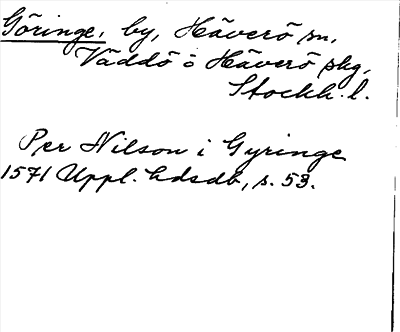 Göringe, by, Häverö sn,
Väddö o Häverö skg,
Stockh. l.
Per Nilson i Gyringe
1571 Uppl. hdsdb, s. 53.